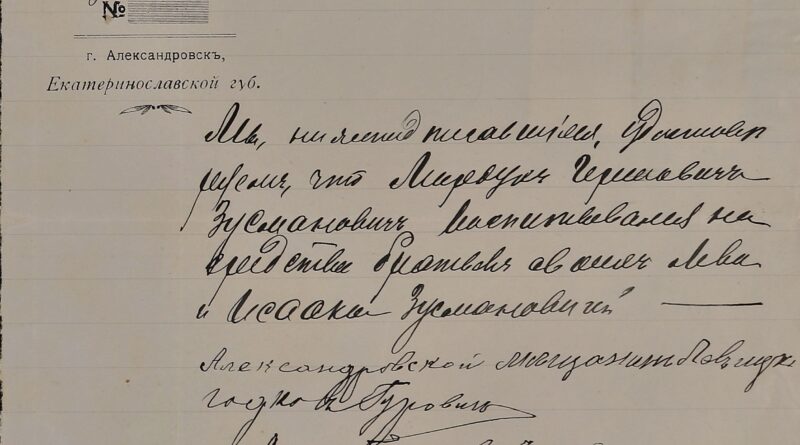 №
г. Александровскъ,
Екатеринославской губ.
Мы, нижеподписавшіеся, удостове
ряемъ, что Мардухъ Гершовичъ
Зусмановичъ воспитывался на
средства братьевъ своихъ Лева
и Исаака Зусмановичей
Александровской мещанинъ
Гуровичъ